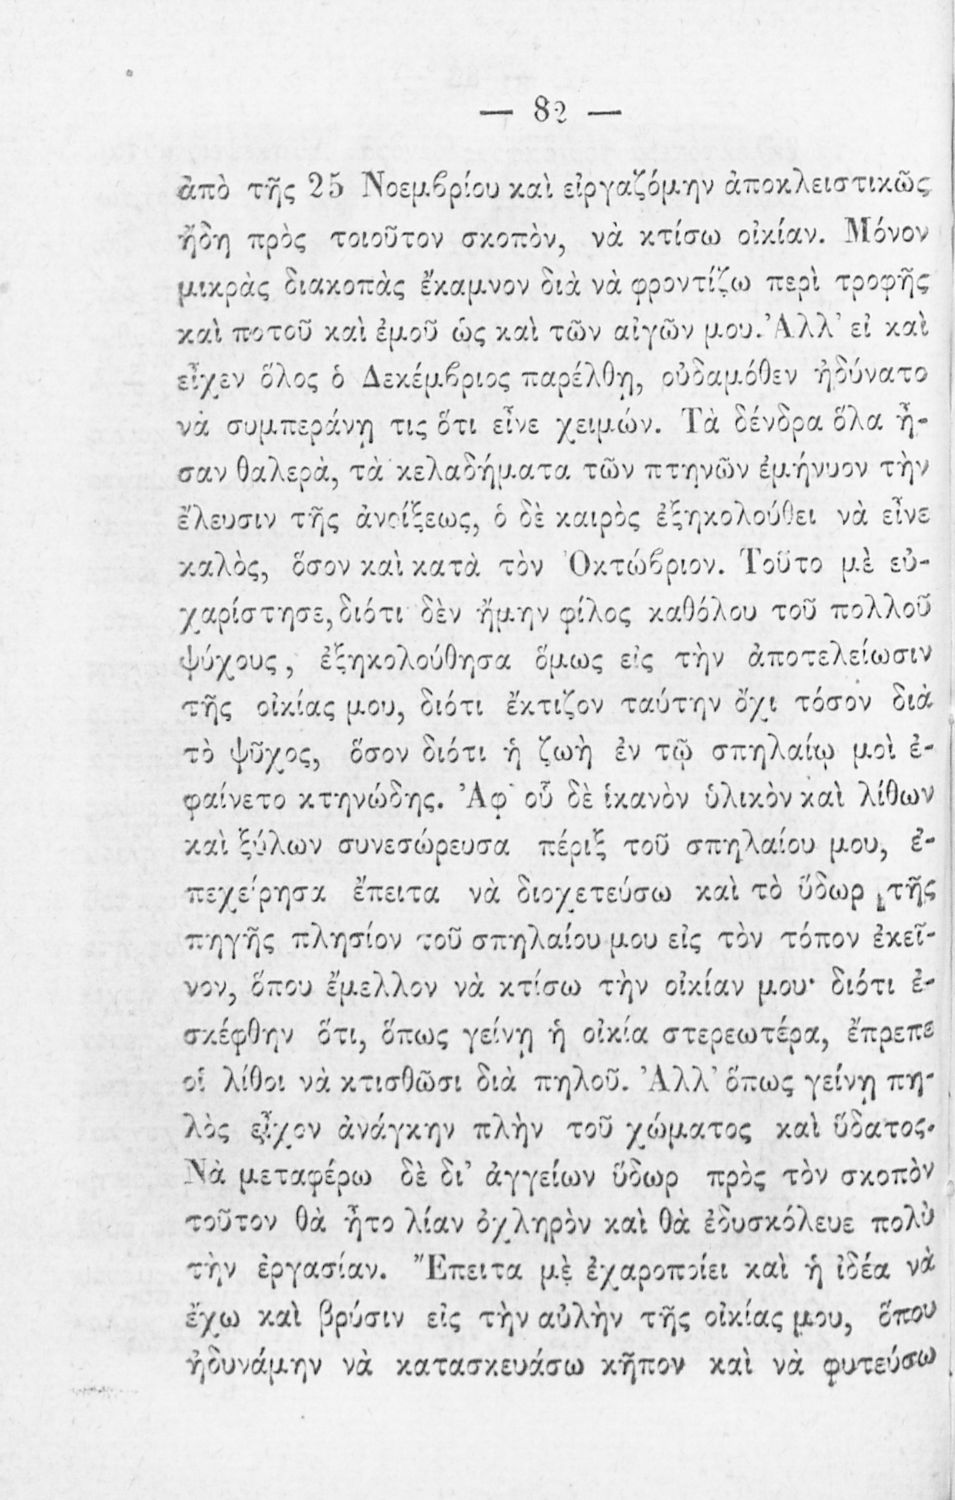 — 82 —
ἀπὸ τῆς 25 Νοεμβρίου καὶ εἰργαζόμην ἀποκλειστικῶς
ἤδη πρὸς τοιοῦτον σκοπὸν, νὰ κτίσω οἰκίαν. Μόνον
μικρὰς διακοπὰς ἔκαμνον διὰ νὰ φροντίζω περὶ τροφῆς
καὶ ποτοῦ καὶ ἐμοῦ ὡς καὶ τῶν αἰγῶν μου. Ἀλλ’ εἰ καὶ
εἶχεν ὅλος ὁ Δεκέμβριος παρέλθῃ, οὐδαμόθεν ἠδύνατο
νὰ συμπεράνῃ τις ὅτι εἶνε χειμών. Τὰ δένδρα ὅλα ἦ-
σαν θαλερὰ, τὰ κελαδήματα τῶν πτηνῶν ἐμήνυον τὴν
ἔλευσιν τῆς ἀνοίξεως, ὁ δὲ καιρὸς ἐξηκολούθει νὰ εἶνε
καλὸς, ὅσον καὶ κατὰ τὸν Ὀκτώβριον. Τοῦτο μὲ εὐ-
χαρίστησε, διότι δὲν ἤμην φίλος καθόλου τοῦ πολλοῦ
ψύχους, ἐξηκολούθησα ὅμως εἰς τὴν ἀποτελείωσιν
τῆς οἰκίας μου, διότι ἔκτιζον ταύτην ὄχι τόσον διὰ
τὸ ψῦχος, ὅσον διότι ἡ ζωὴ ἐν τῷ σπηλαίῳ μοὶ ἐ-
φαίνετο κτηνώδης. Ἀφ’ οὗ δὲ ἱκανὸν ὑλικὸν καὶ λίθων
καὶ ξύλων συνεσώρευσα πέριξ τοῦ σπηλαίου μου, ἐ-
πεχείρησα ἔπειτα νὰ διοχετεύσω καὶ τὸ ὕδωρ τῆς
πηγῆς πλησίον τοῦ σπηλαίου μου εἰς τὸν τόπον ἐκεῖ-
νον, ὅπου ἔμελλον νὰ κτίσω τὴν οἰκίαν μου· διότι ἐ-
σκέφθην ὅτι, ὅπως γείνῃ ἡ οἰκία στερεωτέρα, ἔπρεπε
οἱ λίθοι νὰ κτισθῶσι διὰ πηλοῦ. Ἀλλ’ ὅπως γείνῃ πη-
λὸς εἶχον ἀνάγκην πλὴν τοῦ χώματος καὶ ὕδατος.
Νὰ μεταφέρω δὲ δι’ ἀγγείων ὕδωρ πρὸς τὸν σκοπὸν
τοῦτον θὰ ἦτο λίαν ὀχληρὸν καὶ θὰ ἐδυσκόλευε πολὺ
τὴν ἐργασίαν. Ἔπειτα μὲ ἐχαροποίει καὶ ἡ ἰδέα νὰ
ἔχω καὶ βρύσιν εἰς τὴν αὐλὴν τῆς οἰκίας μου, ὅπου
ἠδυνάμην νὰ κατασκευάσω κῆπον καὶ νὰ φυτεύσω